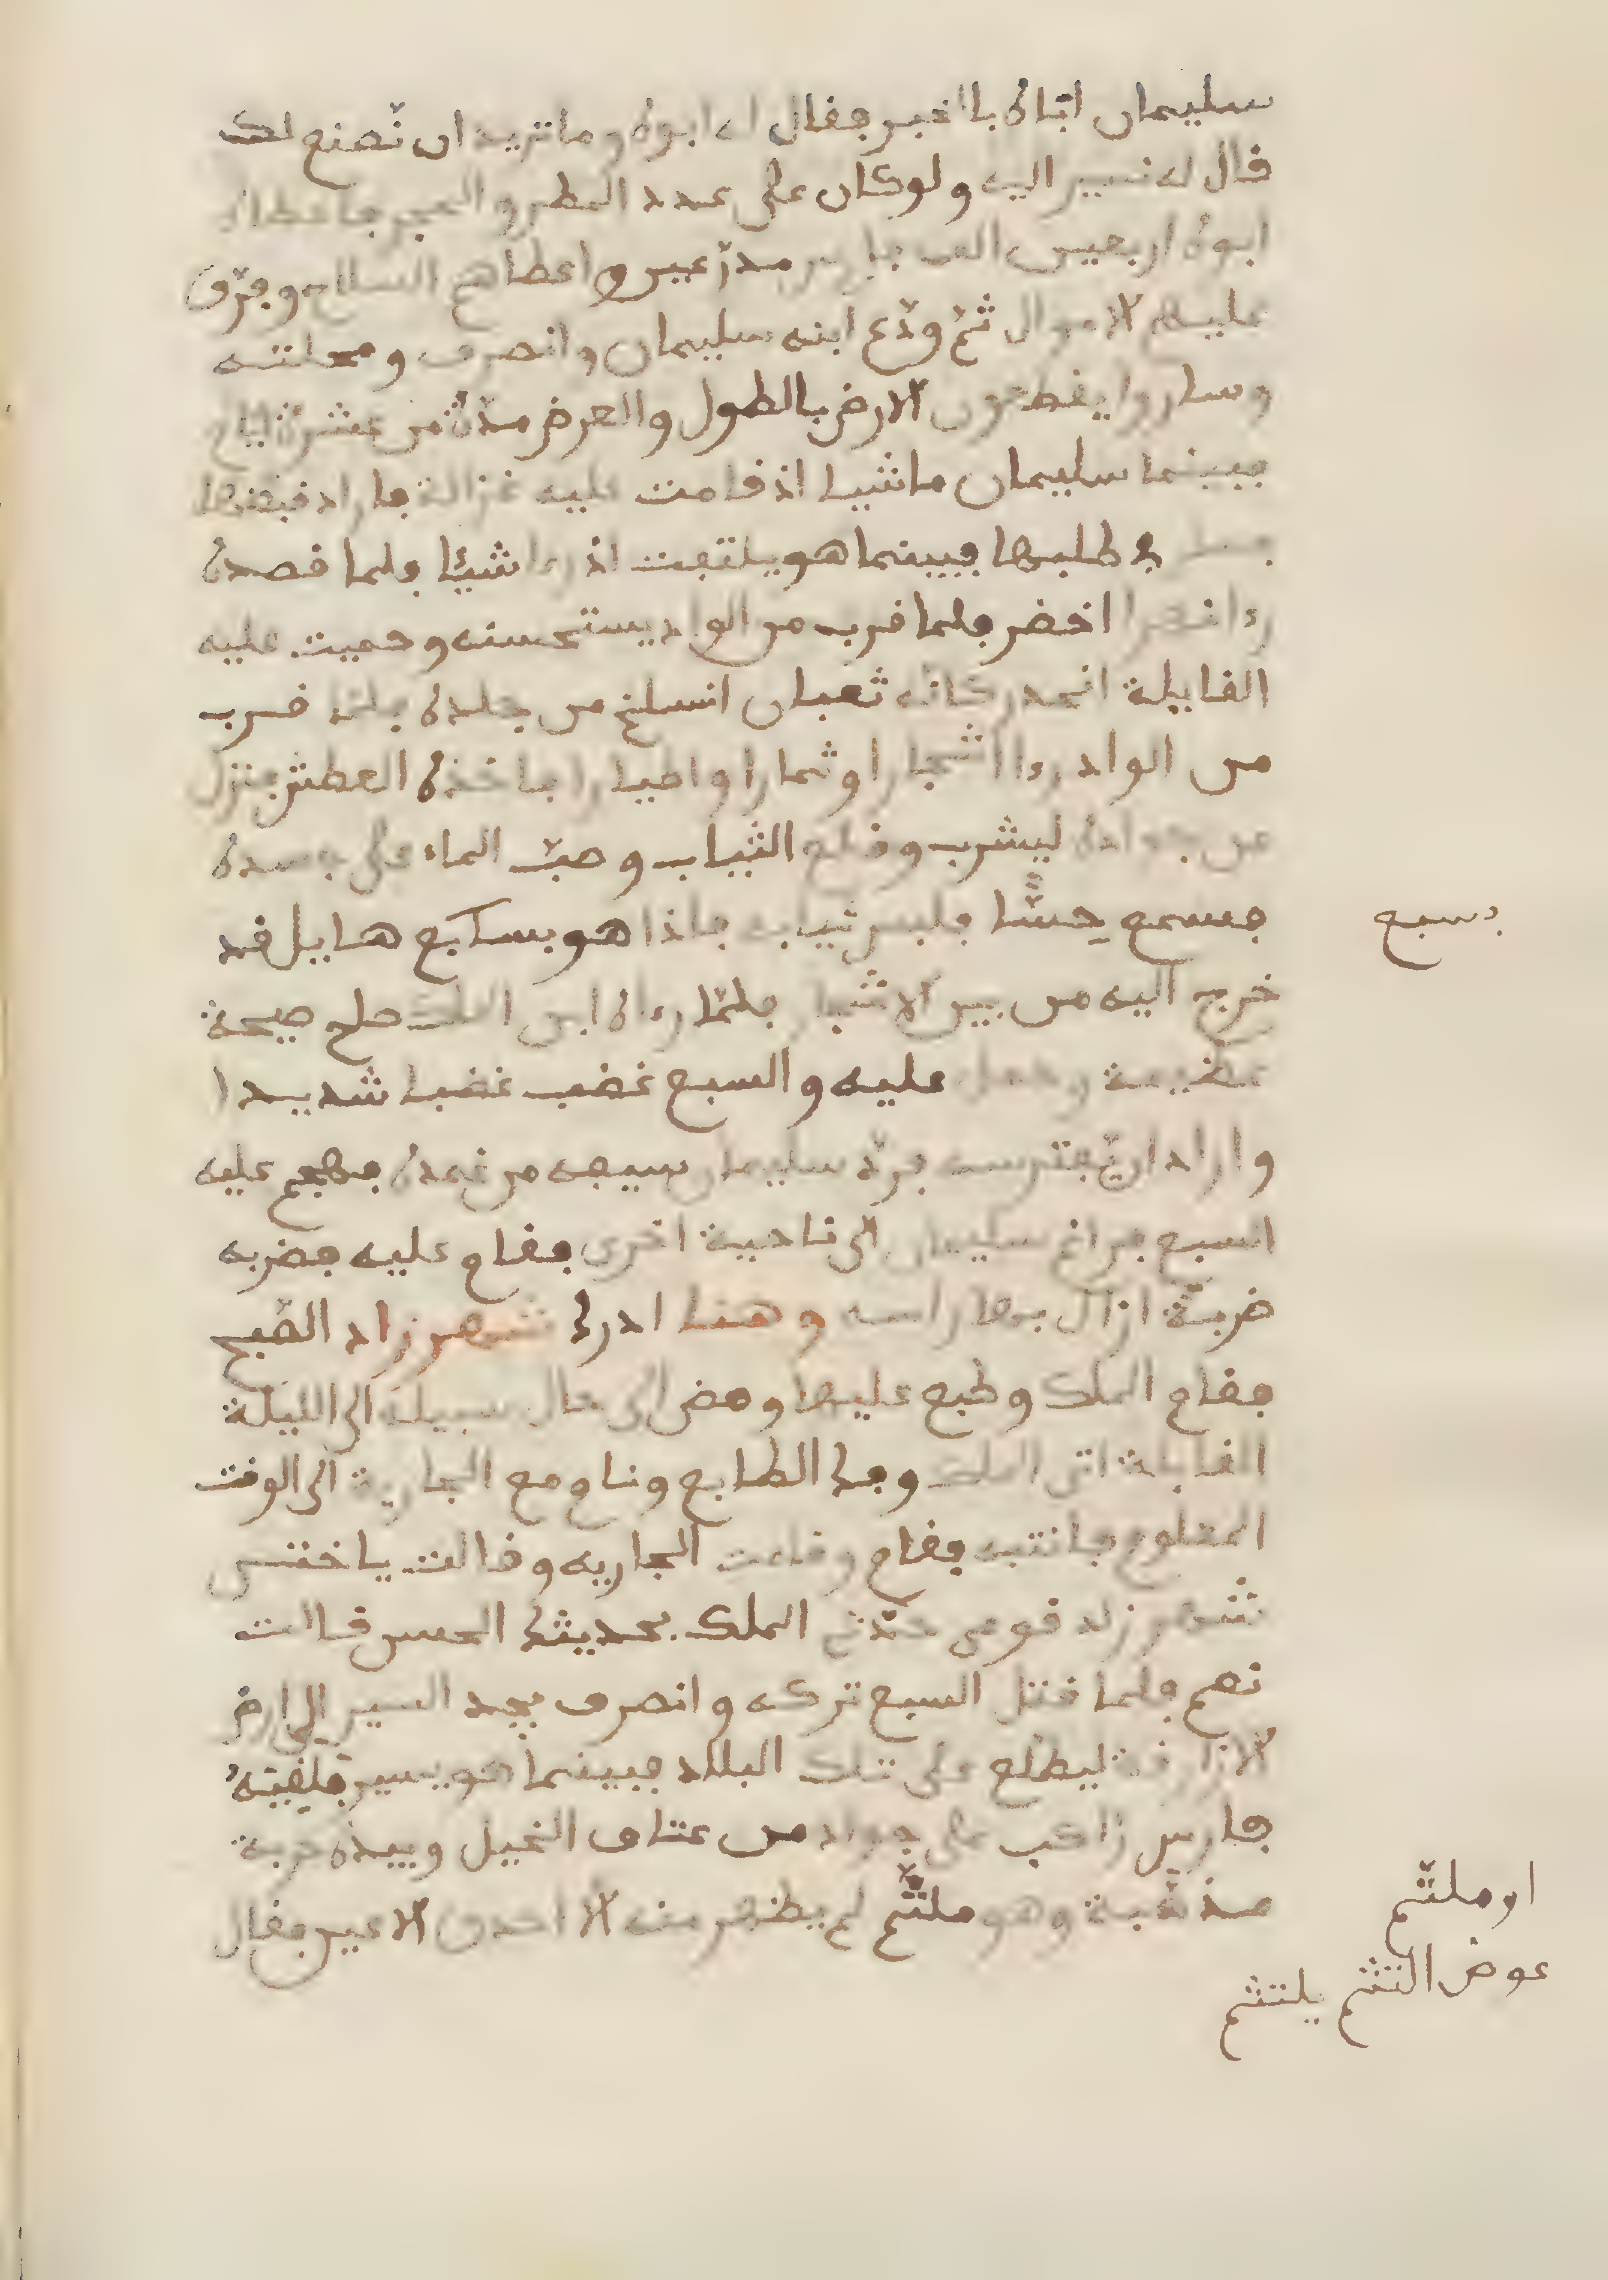 سليمان اباه بالخبر فقال له ابوه وما تريد ان نصنع لك
قال له نسير اليه ولو كان على عدد المطر و فاعطاه
ابوه اربعين الف فارس مدرّعين واعطاهم السلاح وفرّق
عليهم الاموال ثمّ ودّع ابنه سليمان وانصرف ومحلته
وساروا يقطعون الارض بالطول والعرض مدّة من عشرة ايّام
فبينما سليمان ماشيا اذ قامت عليه غزالة فاراد قبضها
في طلبها فبينما هو يلتفت اذ رءا شيئا فلما قصده
رءا اخضر فلما قرب من الواد يستحسنه وحميت عليه
القايلة انحدر كانّه ثعبان انسلخ من جلده فلمّا قرب
من الواد رءا اشجارا وثمارا واطيارا فاخذه العطش فنزل
عن جواده ليشرب وقلع الثياب وصبّ الماء على جسده
فسمع حِسّا فلبس ثيابه فاذا هو بسابع هايل قد
خرج اليه من بين الاشجار فلمّا رءاه ابن الملك صاح صيحة
عظيمة وحمل عليه والسبع غضب غضبا شديدا
واراد ان يّفترسه فردّ سليمان سيفه من غمده فطمع عليه
السبع فراغ سليمان الى ناحية اخرى فقام عليه فضربه
ضربة ازال بها راسه وهنا ادرك شهرزاد الصّبح
فقام الملك وطبع عليها ومضى الى حال سبيله الى الليلة
القابلة اتى الملك وفك الطابع ونام مع الجارية الى الوقت
المعلوم فانتبه فقام وقامت الجاريه وقالت ياختي
شهرزاد قومي حدّثي الملك بحديثك الحسن قالت
نعم فلما قتل السبع تركه وانصرف يجد السير الى ارض
الازارقة ليطلع على تلك البلاد فبينما هو يسير فلقيَهُ
فارس راكب على جواد من عتاق الخيل وبيده حربة
مذهّبة وهو ملثّم لم يظهر منه الا احدق الاعين فقال
بسبع
او ملثّم
عوض التثم يلتثم